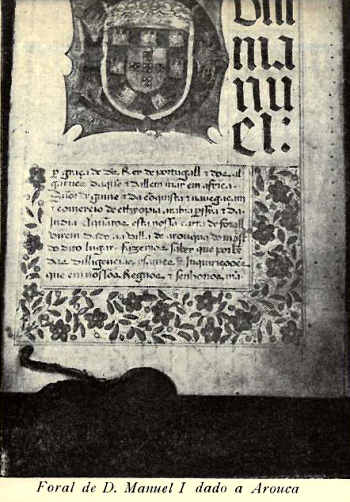 Dm
ma
nu
el:
graça de ds. Rey de portugall & dos al
garues daquẽ & dallem mar em africa
Sñor de guine & da conquista & nauegaçam
& comercio de ethyopia, arabia persia & da
India. A quãtos esta nossa carta de forall
virem dado aa villa de arouqua
do dito lugar. fazemos saber que por be
das Diligencias, & Inquiriçoões
que em nossos Regnos & senhorios, mã
Foral de D. Manuel I dado a Arouca